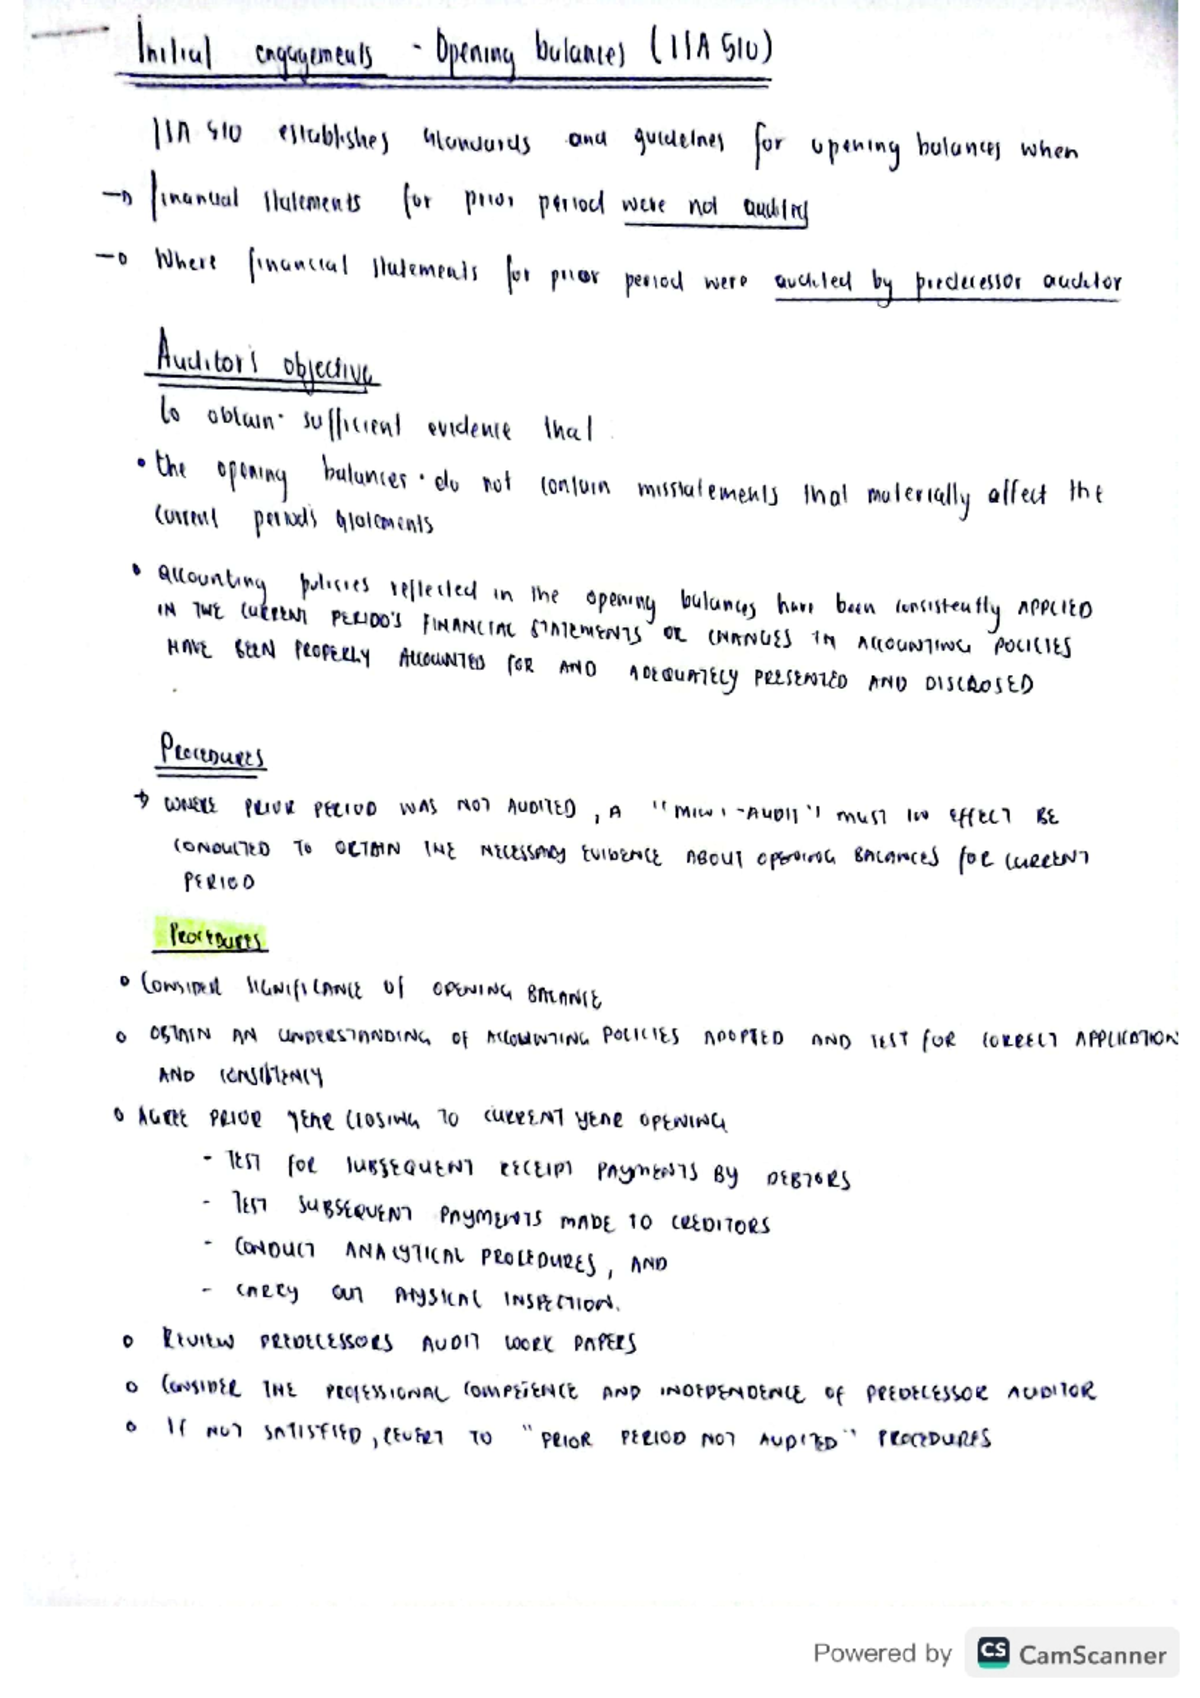 Initial engagements - Opening balances (ISA 510)
ISA 510 establishes standards and guidelines for opening balances when
→ financial statements for prior period were not audited
→ Where financial statements for prior period were audited by predecessor auditor
Auditor's objective
to obtain sufficient evidence that
• the opening balances do not contain misstatements that materially affect the
current period's statements
• accounting policies reflected in the opening balances have been consistently APPLIED
IN THE CURRENT PERIOD'S FINANCIAL STATEMENTS OR CHANGES IN ACCOUNTING POLICIES
HAVE BEEN PROPERLY ACCOUNTED FOR AND ADEQUATELY PRESENTED AND DISCLOSED
PROCEDURES
→ WHERE PRIOR PERIOD WAS NOT AUDITED, A "MINI-AUDIT" MUST IN EFFECT BE
CONDUCTED TO OBTAIN THE NECESSARY EVIDENCE ABOUT OPENING BALANCES FOR CURRENT
PERIOD
PROCEDURES
• CONSIDER SIGNIFICANCE OF OPENING BALANCE
• OBTAIN AN UNDERSTANDING OF ACCOUNTING POLICIES ADOPTED AND TEST FOR CORRECT APPLICATION
AND CONSISTENCY
• AGREE PRIOR YEAR CLOSING TO CURRENT YEAR OPENING
- TEST FOR SUBSEQUENT RECEIPT PAYMENTS BY DEBTORS
- TEST SUBSEQUENT PAYMENTS MADE TO CREDITORS
- CONDUCT ANALYTICAL PROCEDURES, AND
- CARRY OUT PHYSICAL INSPECTION.
• REVIEW PREDECESSORS AUDIT WORK PAPERS
• CONSIDER THE PROFESSIONAL COMPETENCE AND INDEPENDENCE OF PREDECESSOR AUDITOR
• IF NOT SATISFIED, REVERT TO "PRIOR PERIOD NOT AUDITED" PROCEDURES
Powered by CS CamScanner